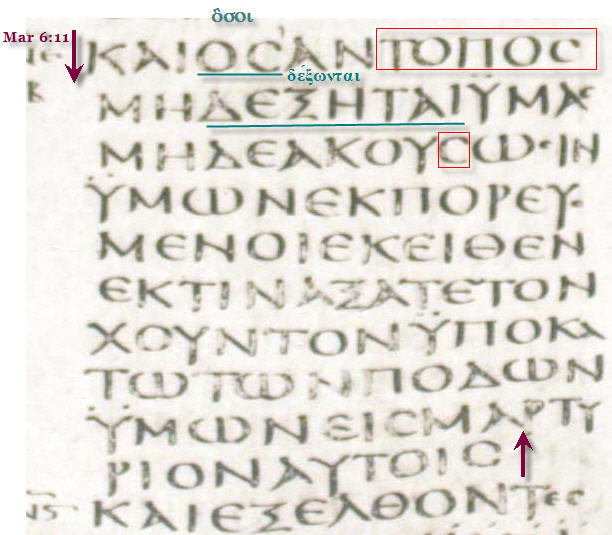 ὅσοι
Mar 6:11
ΚΑΙΟϹΑΝΤΟΠΟϹ
δέξωνται
ΜΗΔΕΞΗΤΑΙΫΜΑϹ
ΜΗΔΕΑΚΟΥϹΩϹΙΝ
ΫΜΩΝΕΚΠΟΡΕΥ
ΜΕΝΟΙΕΚΕΙΘΕΝ
ΕΚΤΙΝΑΞΑΤΕΤΟΝ
ΧΟΥΝΤΟΝΫΠΟΚΑ
ΤΩΤΩΝΠΟΔΩΝ
ΫΜΩΝΕΙϹΜΑΡΤΥ
ΡΙΟΝΑΥΤΟΙϹ
ΚΑΙΕΞΕΛΘΟΝΤΕϹ